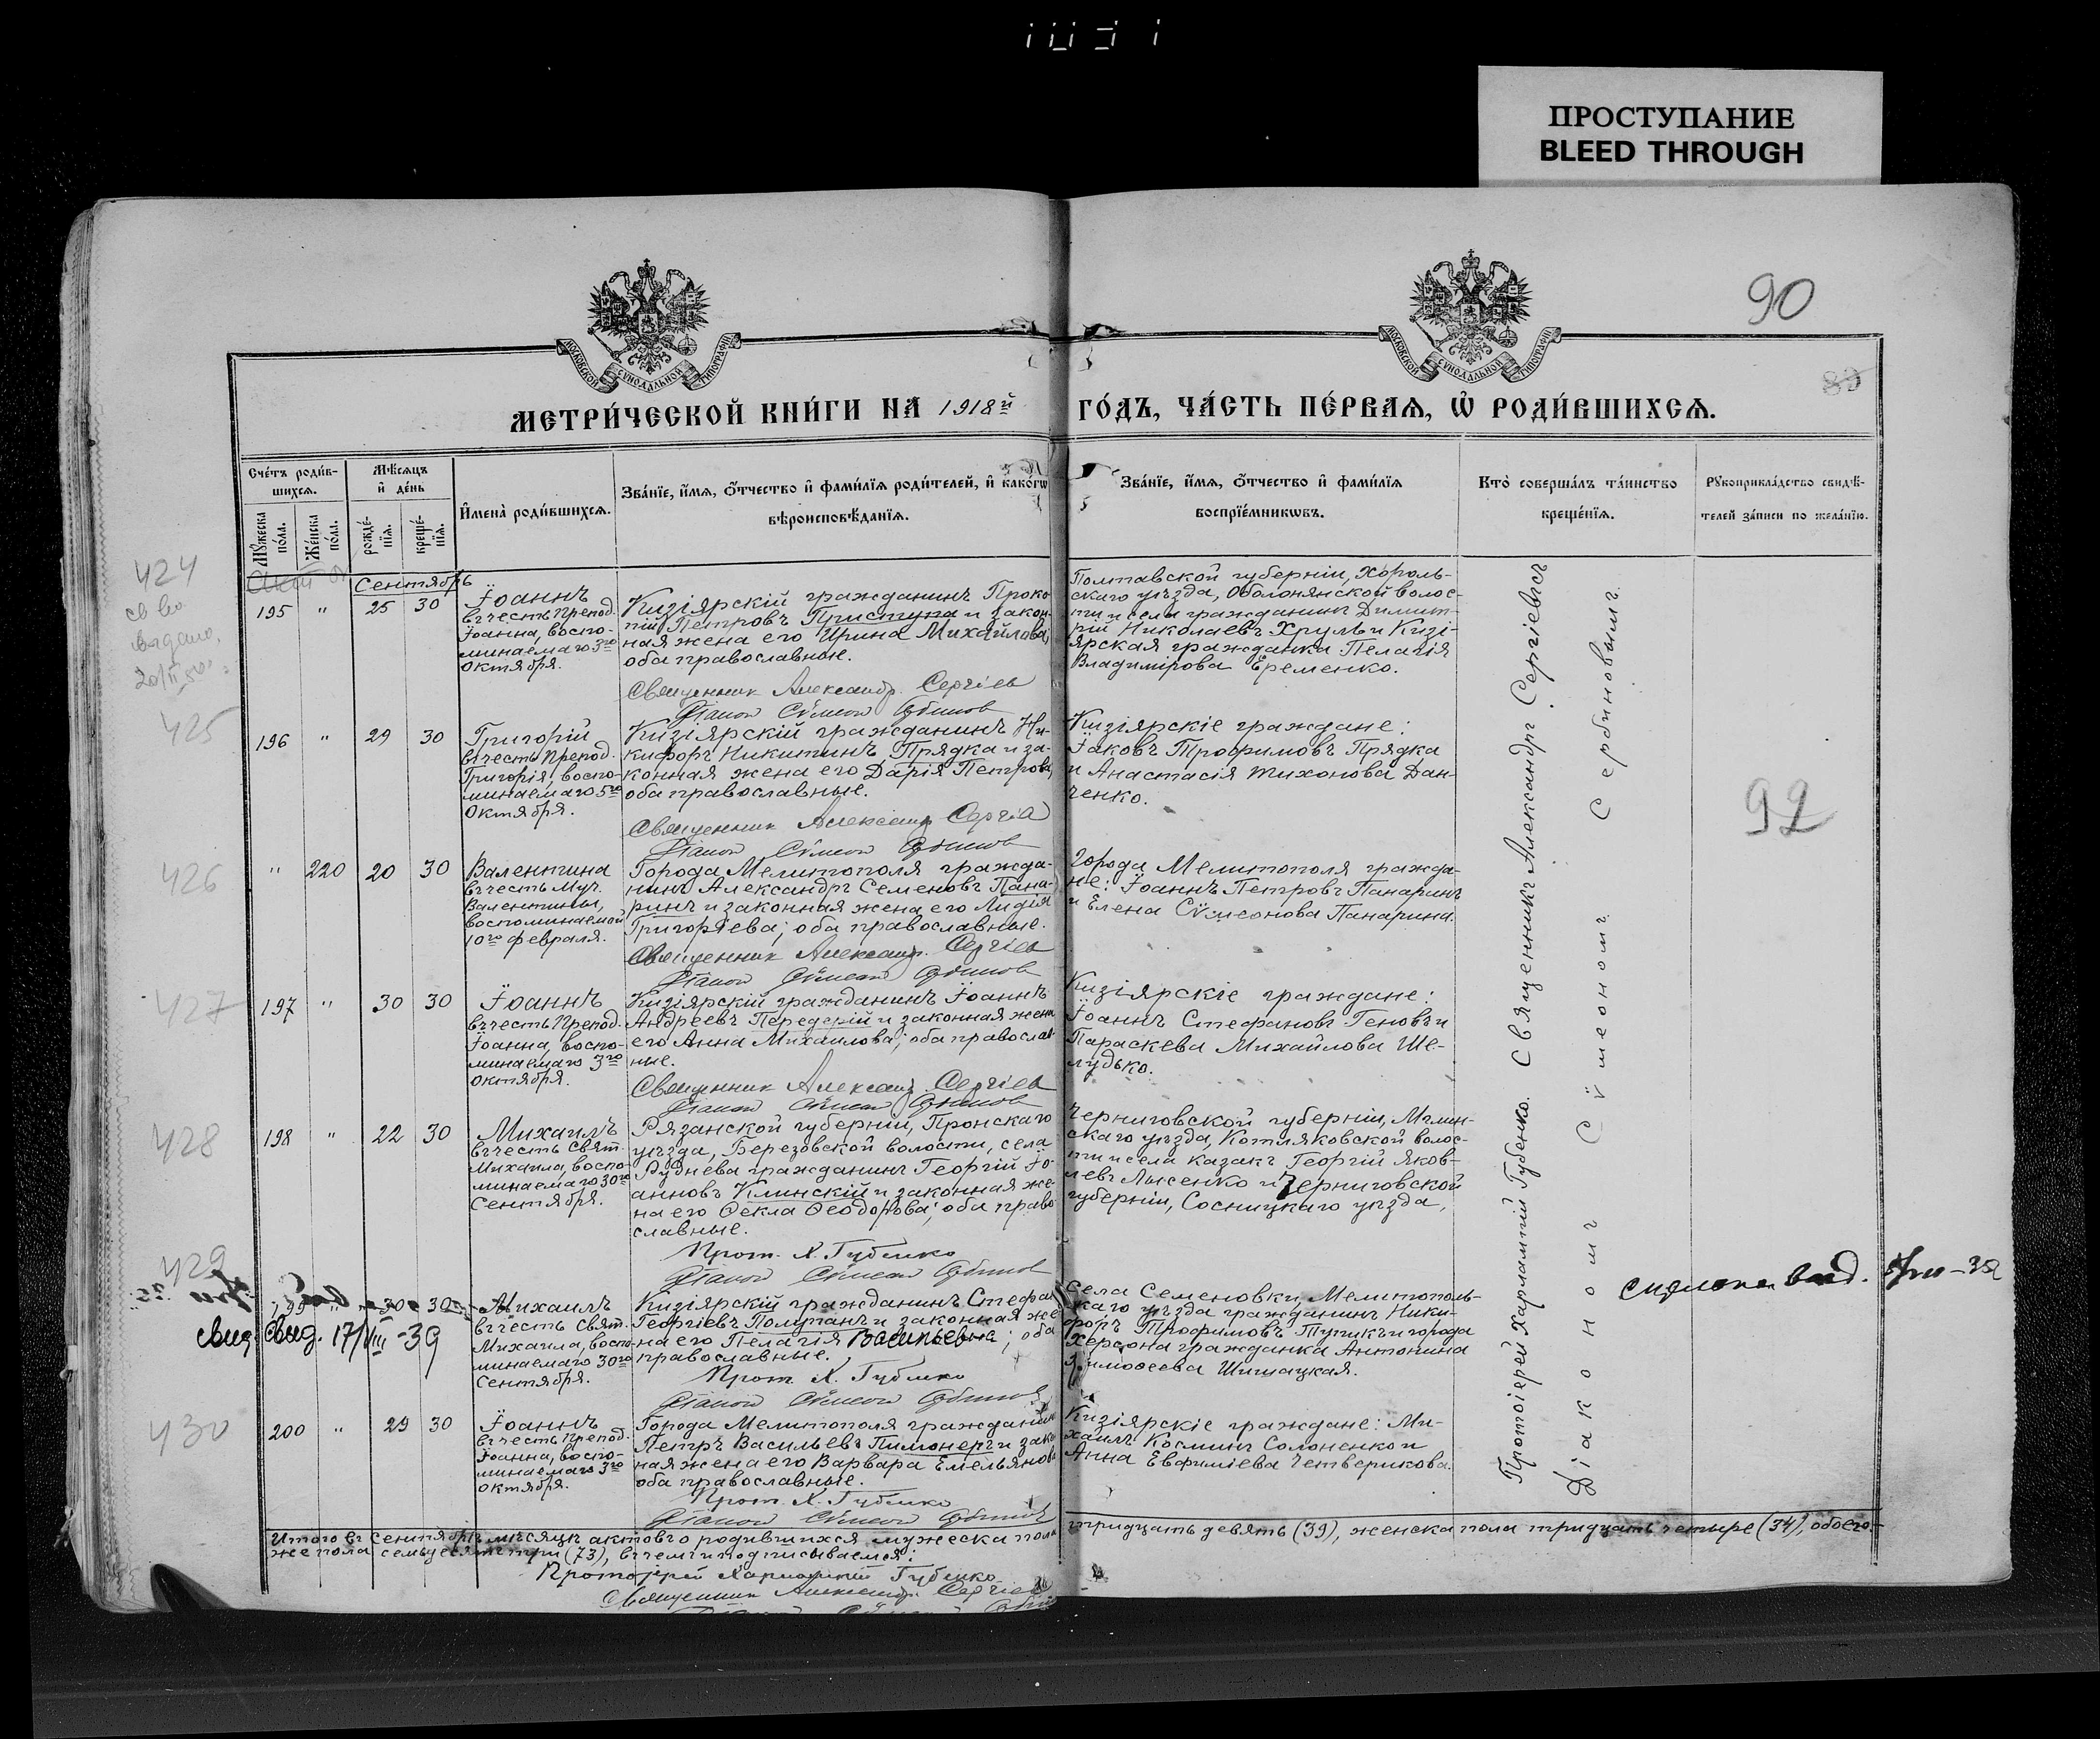 ПРОСТУПАНИЕ
BLEED THROUGH
90
89
МОСКОВСКОЙ СѴНОДАЛЬНОЙ ТИПОГРАФІИ
МОСКОВСКОЙ СѴНОДАЛЬНОЙ ТИПОГРАФІИ
МЕТРИ́ЧЕСКОЙ КНИ́ГИ НА 1918й ГО́ДЪ, ЧА́СТЬ ПЕ́РВАѦ, Ѡ҆ РОДИ́ВШИХСѦ.
Сче́тъ роди́в-
шихсѧ.
Мꙋ́жеска по́ла.
Же́нска по́ла.
Мѣ́сѧцъ
и҆ де́нь
рожде́-
нїѧ.
креще́-
нїѧ.
И҆мена̀ роди́вшихсѧ.
Зва́нїе, и҆́мѧ, ѻ҆́тчество и҆ фами́лїѧ роди́телей, и҆ како́гѡ
вѣроисповѣ́данїѧ.
Зва́нїе, и҆́мѧ, ѻ҆́тчество и҆ фами́лїѧ
воспрїе́мникѡвъ.
Кто̀ соверша́лъ та́инство
креще́нїѧ.
Рꙋкоприкла́дство свидѣ́-
телей за́писи по жела́нїю.
424
св во
выдано
Сентябрь
195 " 25 30
Іоаннъ
въ честь Препод.
Іоанна, воспо-
минаемаго 3го
Октября.
Кизіярскій гражданинъ Проко-
пій Петровъ Приступа и закон-
ная жена его Ирина Михайлова,
оба православные.
Священник Александр Сергіев
Діакон Сѵмеон Сербинов
Полтавской губерніи, Хороль-
скаго уѣзда, Оболонянской волос-
ти и села гражданинъ Димит-
рій Николаевъ Хруль и Кизі-
ярская гражданка Пелагія
Владимірова Еременко.
425
196 " 29 30
Григорій
въ честь Препод.
Григорія, воспо-
минаемаго 5го
Октября.
Кизіярскій гражданинъ Ни-
кифоръ Никитинъ Прядка и за-
конная жена его Дарія Петрова,
оба православные.
Священник Александр Сергіев
Діакон Сѵмеон Сербинов
Кизіярскіе граждане:
Іаковъ Трофимовъ Прядка
и Анастасія Тихонова Дан-
ченко.
92
426
" 220 20 30
Валентина
въ честь Муч.
Валентины,
воспоминаемой
10го февраля.
Города Мелитополя гражда-
нинъ Александръ Семеновъ Пана-
ринъ и законная жена его Лидія
Григорьева; оба православные.
Священник Александр Сергіев
Діакон Сѵмеон Сербинов
Города Мелитополя гражда-
не: Іоаннъ Петровъ Панаринъ
и Елена Сѵмеонова Панарина.
427
197 " 30 30
Іоаннъ
въ честь Препод.
Іоанна, воспо-
минаемаго 3го
Октября.
Кизіярскій гражданинъ Іоаннъ
Андреевъ Передерій и законная жена
его Анна Михаилова; оба православ-
ные.
Священник Александр Сергіев
Діакон Сѵмеон Сербинов
Кизіярскіе граждане:
Іоаннъ Стефановъ Геновъ и
Параскева Михайлова Ше-
лудько.
428
198 " 22 30
Михаилъ
въ честь Свят.
Михаила, воспо-
минаемаго 30го
Сентября.
Рязанской губерніи, Пронскаго
уѣзда, Березовской волости, села
Руднева гражданинъ Георгій Іо-
анновъ Климскій и законная же-
на его Ѳекла Ѳеодорова; оба право-
славные.
Прот. Х. Губенко
Діакон Сѵмеон Сербинов
Черниговской губерніи, Мглин-
скаго уѣзда, Котляковской волос-
ти и села казакъ Георгій Яков-
левъ Лысенко и Черниговской
губерніи, Сосницкаго уѣзда,
429
199 " 30 30
свид. свид. 17/VIII-39
Михаилъ
въ честь Свят.
Михаила, воспо-
минаемаго 30го
Сентября.
Кизіярскій гражданинъ Стефан
Георгіевъ Полтанъ и законная же-
на его Пелагія Васильевна; оба
православные.
Прот. Х. Губенко
Діакон Сѵмеон Сербинов
Села Семеновки, Мелитополь-
скаго уѣзда гражданинъ Ники-
форъ Трофимовъ Тупикъ и города
Херсона гражданка Антонина
Тимоѳеева Шишацкая.
430
200 " 29 30
Іоаннъ
въ честь Препод.
Іоанна, воспо-
минаемаго 3го
Октября.
Города Мелитополя гражданинъ
Петръ Васильевъ Пимонеръ и закон-
ная жена его Варвара Емельянова
оба православные.
Прот. Х. Губенко
Діакон Сѵмеон Сербинов
Кизіярскіе граждане: Ми-
хаилъ Косминъ Солоненко и
Анна Евфиміева Четверикова.
Протоіерей Харлампій Губенко. Священникъ Александръ Сергіевъ
Діакономъ Сѵмеономъ Сербиновымъ.
Итого въ Сентябрѣ мѣсяцѣ актовъ о родившихся мужеска пола тридцать девять (39), женска пола тридцать четыре (34), обоего-
же пола семьдесятъ три (73), въ чемъ и подписываемся:
Протоіерей Харлампій Губенко
Священник Александр Сергіев